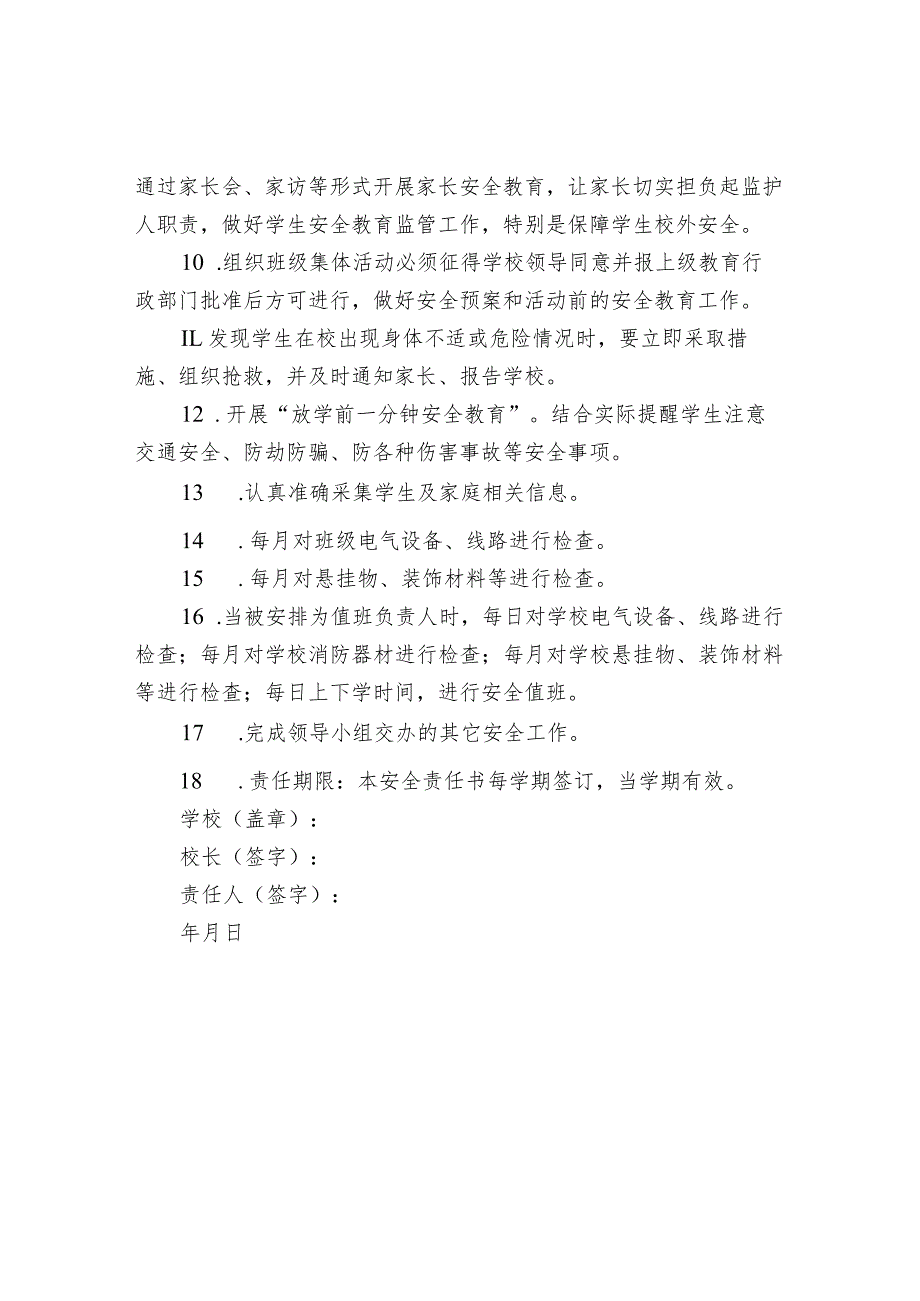 通过家长会、家访等形式开展家长安全教育，让家长切实担负起监护
人职责，做好学生安全教育监管工作，特别是保障学生校外安全。
10 .组织班级集体活动必须征得学校领导同意并报上级教育行
政部门批准后方可进行，做好安全预案和活动前的安全教育工作。
IL 发现学生在校出现身体不适或危险情况时，要立即采取措
施、组织抢救，并及时通知家长、报告学校。
12 .开展“放学前一分钟安全教育”。结合实际提醒学生注意
交通安全、防劫防骗、防各种伤害事故等安全事项。
13 .认真准确采集学生及家庭相关信息。
14 .每月对班级电气设备、线路进行检查。
15 .每月对悬挂物、装饰材料等进行检查。
16 .当被安排为值班负责人时，每日对学校电气设备、线路进行
检查；每月对学校消防器材进行检查；每月对学校悬挂物、装饰材料
等进行检查；每日上下学时间，进行安全值班。
17 .完成领导小组交办的其它安全工作。
18 .责任期限：本安全责任书每学期签订，当学期有效。
学校（盖章）：
校长（签字）：
责任人（签字）：
年月日